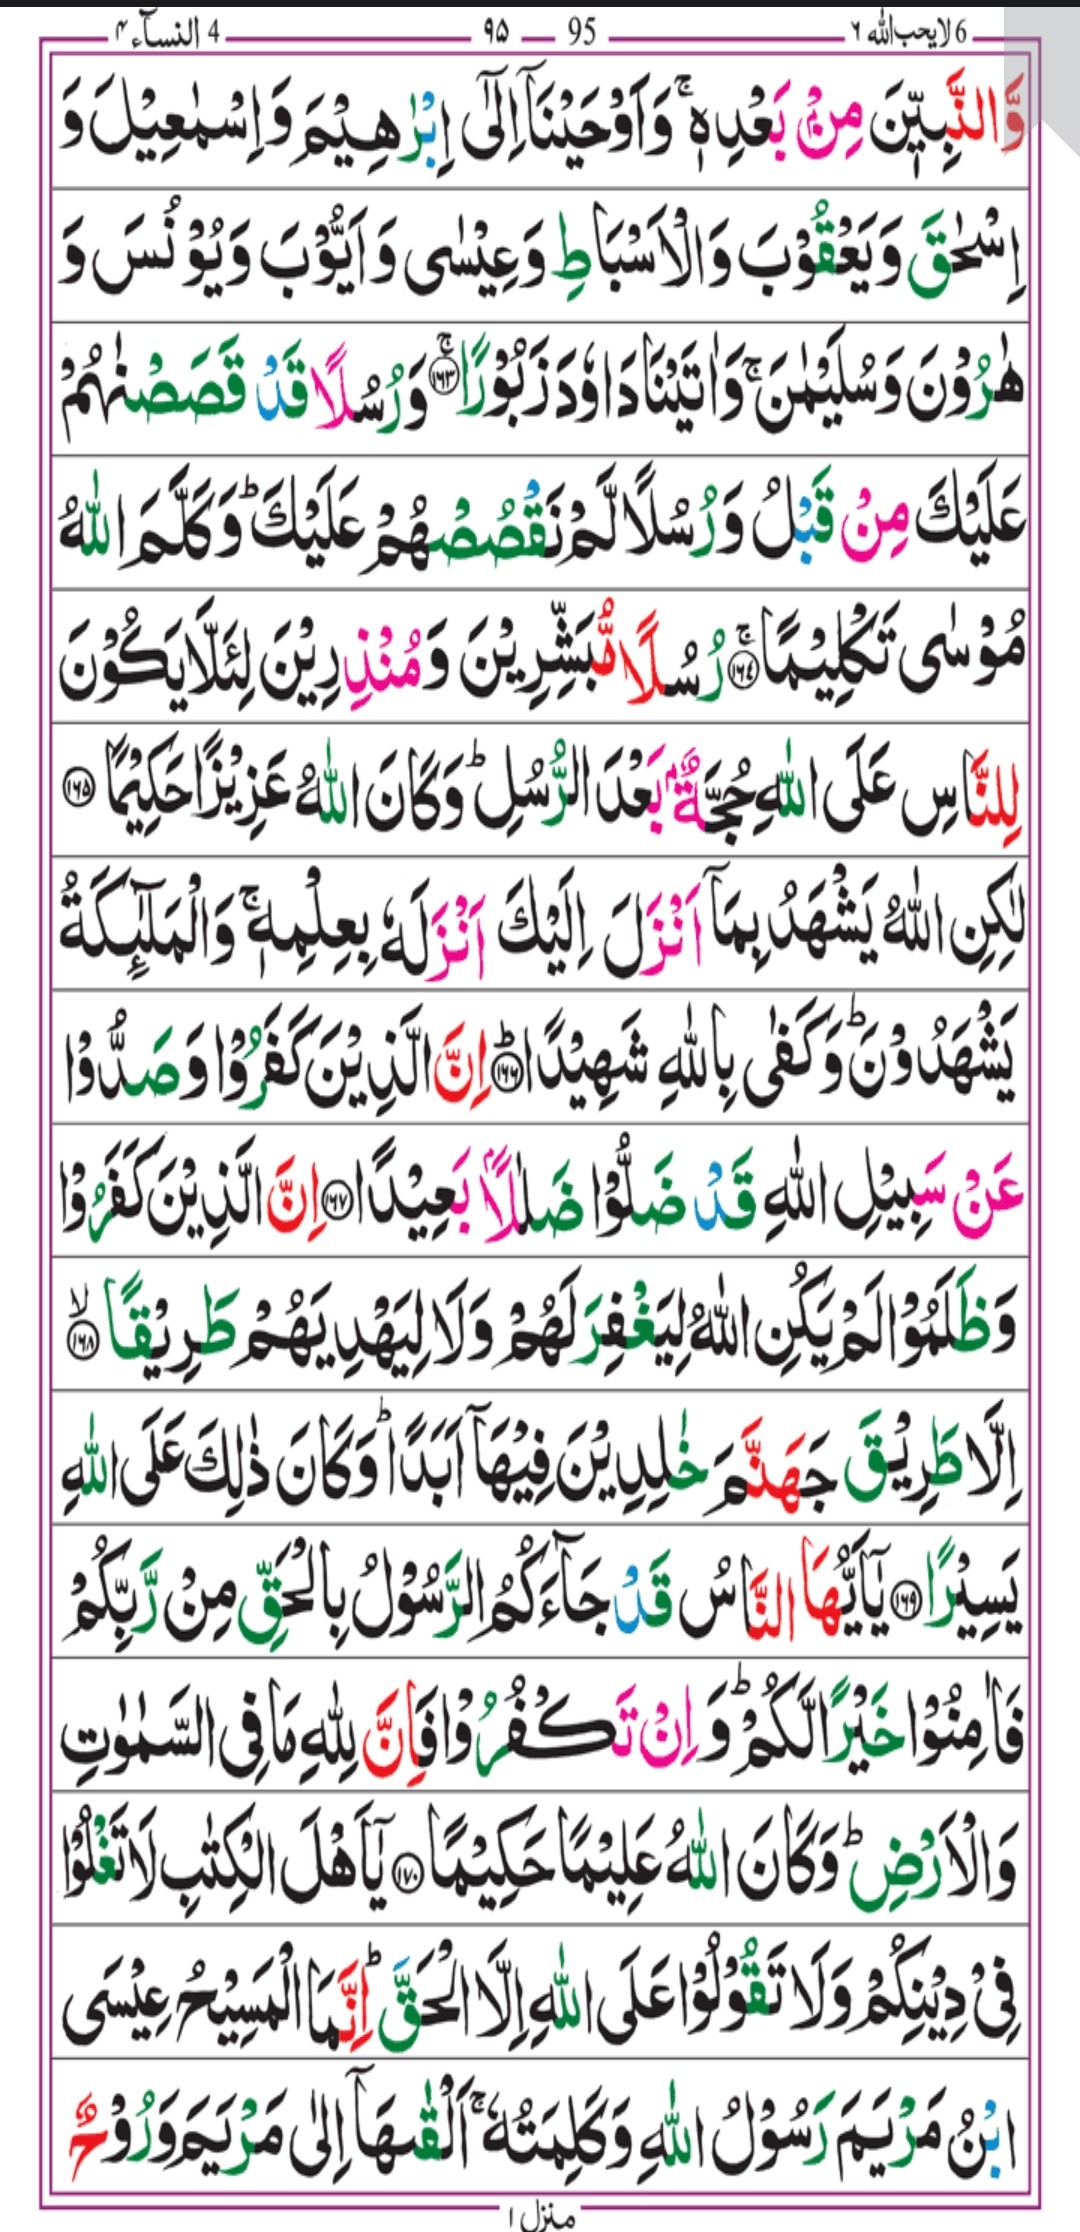 6 لایحب الله ۶ 95 — ۹۵ 4 النسآء ۴
وَّالنَّبِيّٖنَ مِنْۢ بَعْدِهٖ ۚ وَاَوْحَيْنَاۤ اِلٰۤى اِبْرٰهِيْمَ وَاِسْمٰعِيْلَ وَ
اِسْحٰقَ وَيَعْقُوْبَ وَالْاَسْبَاطِ وَعِيْسٰى وَاَيُّوْبَ وَيُوْنُسَ وَ
هٰرُوْنَ وَسُلَيْمٰنَ ۚ وَاٰتَيْنَا دَاوٗدَ زَبُوْرًا ۚ‏﴿۱۶۳﴾ وَرُسُلًا قَدْ قَصَصْنٰهُمْ
عَلَيْكَ مِنْ قَبْلُ وَرُسُلًا لَّمْ نَقْصُصْهُمْ عَلَيْكَ ؕ وَكَلَّمَ اللّٰهُ
مُوْسٰى تَكْلِيْمًا ۚ‏﴿۱۶۴﴾ رُسُلًا مُّبَشِّرِيْنَ وَمُنْذِرِيْنَ لِئَلَّا يَكُوْنَ
لِلنَّاسِ عَلَى اللّٰهِ حُجَّةٌۢ بَعْدَ الرُّسُلِ ؕ وَكَانَ اللّٰهُ عَزِيْزًا حَكِيْمًا ﴿۱۶۵﴾
لٰكِنِ اللّٰهُ يَشْهَدُ بِمَاۤ اَنْزَلَ اِلَيْكَ اَنْزَلَهٗ بِعِلْمِهٖ ۚ وَالْمَلٰٓئِكَةُ
يَشْهَدُوْنَ ؕ وَكَفٰى بِاللّٰهِ شَهِيْدًا ؕ‏﴿۱۶۶﴾ اِنَّ الَّذِيْنَ كَفَرُوْا وَصَدُّوْا
عَنْ سَبِيْلِ اللّٰهِ قَدْ ضَلُّوْا ضَلٰلًاۢ بَعِيْدًا ﴿۱۶۷﴾ اِنَّ الَّذِيْنَ كَفَرُوْا
وَظَلَمُوْا لَمْ يَكُنِ اللّٰهُ لِيَغْفِرَ لَهُمْ وَلَا لِيَهْدِيَهُمْ طَرِيْقًا ۙ‏﴿۱۶۸﴾
اِلَّا طَرِيْقَ جَهَنَّمَ خٰلِدِيْنَ فِيْهَاۤ اَبَدًا ؕ وَكَانَ ذٰلِكَ عَلَى اللّٰهِ
يَسِيْرًا ﴿۱۶۹﴾ يٰۤاَيُّهَا النَّاسُ قَدْ جَآءَكُمُ الرَّسُوْلُ بِالْحَقِّ مِنْ رَّبِّكُمْ
فَاٰمِنُوْا خَيْرًا لَّكُمْ ؕ وَاِنْ تَكْفُرُوْا فَاِنَّ لِلّٰهِ مَا فِى السَّمٰوٰتِ
وَالْاَرْضِ ؕ وَكَانَ اللّٰهُ عَلِيْمًا حَكِيْمًا ﴿۱۷۰﴾ يٰۤاَهْلَ الْكِتٰبِ لَا تَغْلُوْا
فِىْ دِيْنِكُمْ وَلَا تَقُوْلُوْا عَلَى اللّٰهِ اِلَّا الْحَقَّ ؕ اِنَّمَا الْمَسِيْحُ عِيْسَى
ابْنُ مَرْيَمَ رَسُوْلُ اللّٰهِ وَكَلِمَتُهٗ ۚ اَلْقٰىهَاۤ اِلٰى مَرْيَمَ وَرُوْحٌ
منزل ۱